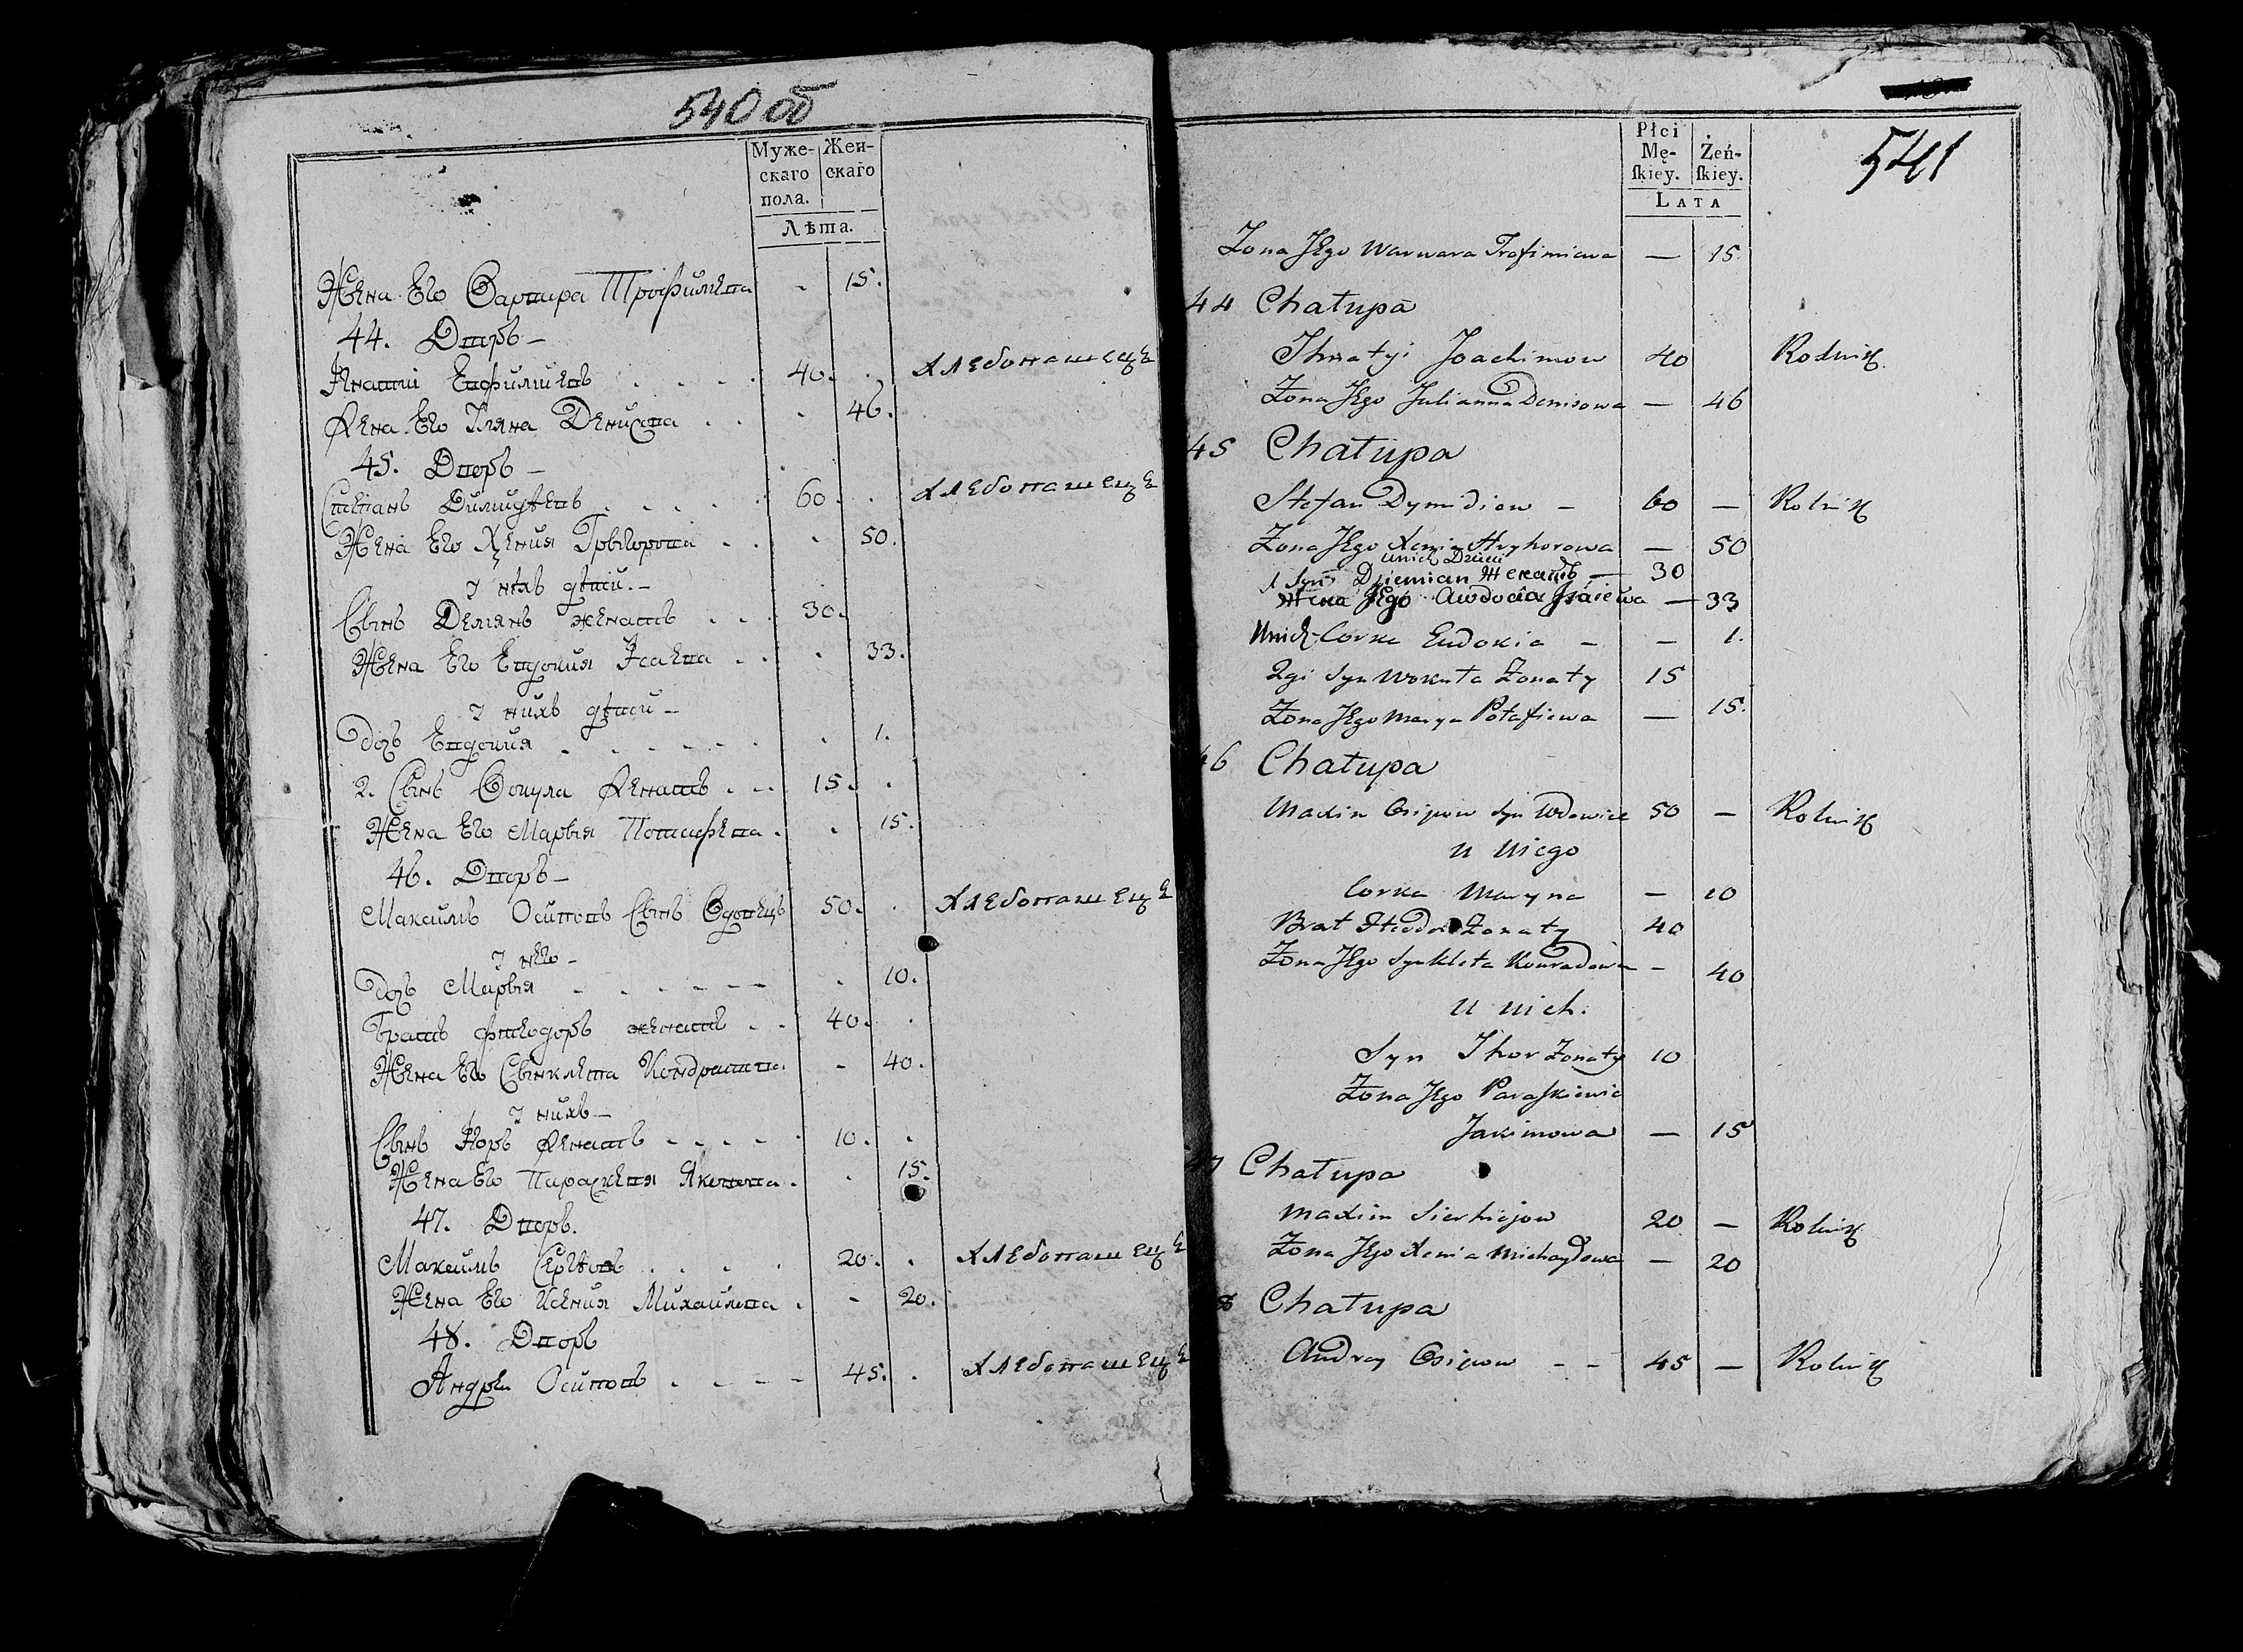 540 об
Муже- Жен-
скаго скаго
пола.
Лѣта.
Жена Его Варвара Трофимева - 15.
44. Дворъ -
Игнатій Евфимиевъ . . . . 40. . хлебопашецъ
Жена Его Уляна Денисова . . . 46.
45. Дворъ -
Степанъ Димидѣевъ . . . . . 60 . . хлебопашецъ
Жена Его Ксения Григорова . . . 50.
У нихъ дѣти. -
Сынъ Демянъ женатъ . . . 30.
Жена Его Евдокия Исаева . . . 33.
У нихъ дѣти -
Дочь Евдокия . . . . . . . 1.
2. Сынъ Вокула Женатъ . . . 15. .
Жена Его Марья Потафева . . 15.
46. Дворъ -
Максимъ Осиповъ Сынъ Вдовецъ 50. . хлебопашецъ
У него -
Дочь Марья . . . . . . . 10.
Братъ Фѣодоръ женатъ . . 40. .
Жена Его Сынклета Кондратова - 40.
У нихъ -
Сынъ Игоръ Женатъ . . . . . 10. .
Жена Его Параскевия Якимова . . 15.
47. Дворъ.
Максимъ Сергѣевъ . . . . 20. . хлебопашецъ
Жена Его Ксения Михаилова . - 20.
48. Дворъ
Андрей Осиповъ . . . . - 45. . хлебопашецъ
541
Płci
Mę- Żeń-
ſkiey. ſkiey.
LATA
Zona Jego Warwara Trofimiewa — 15
44 Chatupa
Ihnatyi Joachimow 40 Rolnik
Zona Jego Julianna Denisowa — 46
45 Chatupa
Stefan Dymidiew - 60 — Rolnik
Zona Jego Xenia Hryhorowa — 50
U nich Dzieci
1 Syn Dziemian Женатъ — 30
Жена Jego Awdocia Isaiewa — 33
U nich Corka Eudokia - — 1.
2gi Syn Wokuta Zonaty 15
Zona Jego Marya Potafiewa — 15.
46 Chatupa
Maxim Osipow Syn Wdowiec 50 — Rolnik
U niego
Corka Maryna — 10
Brat Fteodor Zonaty 40
Zona Jego Synkleta Konradowa - 40
U nich.
Syn Ihor Zonaty 10
Zona Jego Paraſkiewia
Jakimowa — 15
7 Chatupa
Maxim Sierhiejow 20 — Rolnik
Zona Jego Xenia Michayłowa — 20
8 Chatupa
Andrey Osipow - - 45 — Rolnik